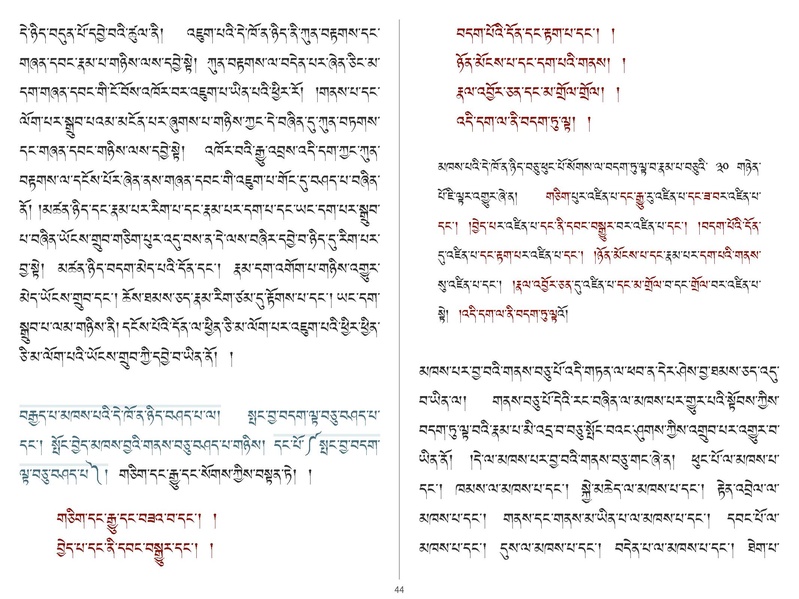 དེ་ཉིད་བདུན་པོ་དབྱེ་བའི་ཚུལ་ནི། འཇུག་པའི་དེ་ཁོ་ན་ཉིད་ནི་ཀུན་བརྟགས་དང་
གཞན་དབང་རྣམ་པ་གཉིས་ལས་དབྱེ་སྟེ། ཀུན་བརྟགས་ལ་བདེན་པར་ཞེན་ཅིང་མ་
དག་གཞན་དབང་གི་ངོ་བོས་འཁོར་བར་འཇུག་པ་ཡིན་པའི་ཕྱིར་རོ། །གནས་པ་དང་
ལོག་པར་སྒྲུབ་པའམ་མངོན་པར་ཞུགས་པ་གཉིས་ཀྱང་དེ་བཞིན་དུ་ཀུན་བཏགས་
དང་གཞན་དབང་གཉིས་ལས་དབྱེ་སྟེ། འཁོར་བའི་རྒྱུ་འབྲས་འདི་དག་ཀྱང་ཀུན་
བརྟགས་ལ་དངོས་པོར་ཞེན་ནས་གཞན་དབང་གི་འཇུག་པ་གོང་དུ་བཤད་པ་བཞིན་
ནོ། །མཚན་ཉིད་དང་རྣམ་པར་རིག་པ་དང་རྣམ་པར་དག་པ་དང་ཡང་དག་པར་སྒྲུབ་
པ་བཞིན་ཡོངས་གྲུབ་གཅིག་པུར་འདུ་བས་ན་དེ་ལས་བཞིར་དབྱེ་བ་ཉིད་དུ་རིག་པར་
བྱ་སྟེ། མཚན་ཉིད་བདག་མེད་པའི་དོན་དང་། རྣམ་དག་འགོག་པ་གཉིས་འགྱུར་
མེད་ཡོངས་གྲུབ་དང་། ཆོས་ཐམས་ཅད་རྣམ་རིག་ཙམ་དུ་རྟོགས་པ་དང་། ཡང་དག་
སྒྲུབ་པ་ལམ་གཉིས་ནི། དངོས་པོའི་དོན་ལ་ཕྱིན་ཅི་མ་ལོག་པར་འཇུག་པའི་ཕྱིར་ཕྱིན་
ཅི་མ་ལོག་པའི་ཡོངས་གྲུབ་ཀྱི་དབྱེ་བ་ཡིན་ནོ། །
བརྒྱད་པ་མཁས་པའི་དེ་ཁོ་ན་ཉིད་བཤད་པ་ལ། སྤང་བྱ་བདག་ལྟ་བཅུ་བཤད་པ་
དང་། སྤོང་བྱེད་མཁས་བྱའི་གནས་བཅུ་བཤད་པ་གཉིས། དང་པོ་༼སྤང་བྱ་བདག་
ལྟ་བཅུ་བཤད་པ་༽། གཅིག་དང་རྒྱུ་དང་སོགས་ཀྱིས་བསྟན་ཏེ། །
གཅིག་དང་རྒྱུ་དང་བཟའ་བ་དང་། །
བྱེད་པ་དང་ནི་དབང་བསྒྱུར་དང་། །
བདག་པོའི་དོན་དང་རྟག་པ་དང་། །
ཉོན་མོངས་པ་དང་དག་པའི་གནས། །
རྣལ་འབྱོར་ཅན་དང་མ་གྲོལ་གྲོལ། །
འདི་དག་ལ་ནི་བདག་ཏུ་ལྟ། །
མཁས་པའི་དེ་ཁོ་ན་ཉིད་བཅུ་ཕུང་པོ་སོགས་ལ་བདག་ཏུ་ལྟ་བ་རྣམ་པ་བཅུའི་ ༣༠ གཉེན་
པོ་ཇི་ལྟར་འགྱུར་ཞེ་ན། གཅིག་པུར་འཛིན་པ་དང་རྒྱུ་རུ་འཛིན་པ་དང་ཟ་བར་འཛིན་པ་
དང་། །བྱེད་པར་འཛིན་པ་དང་ནི་དབང་བསྒྱུར་བར་འཛིན་པ་དང་། །བདག་པོའི་དོན་
དུ་འཛིན་པ་དང་རྟག་པར་འཛིན་པ་དང་། །ཉོན་མོངས་པ་དང་རྣམ་པར་དག་པའི་གནས་
སུ་འཛིན་པ་དང་། །རྣལ་འབྱོར་ཅན་དུ་འཛིན་པ་དང་མ་གྲོལ་བ་དང་གྲོལ་བར་འཛིན་པ་
སྟེ། །འདི་དག་ལ་ནི་བདག་ཏུ་ལྟའོ།
མཁས་པར་བྱ་བའི་གནས་བཅུ་པོ་འདི་གཏན་ལ་ཕབ་ན་དེར་ཤེས་བྱ་ཐམས་ཅད་འདུ་
བ་ཡིན་ལ། གནས་བཅུ་པོ་དེའི་རང་བཞིན་ལ་མཁས་པར་གྱུར་པའི་སྟོབས་ཀྱིས་
བདག་ཏུ་ལྟ་བའི་རྣམ་པ་མི་འདྲ་བ་བཅུ་སྤོང་བའང་ཤུགས་ཀྱིས་འགྲུབ་པར་འགྱུར་བ་
ཡིན་ནོ། །དེ་ལ་མཁས་པར་བྱ་བའི་གནས་བཅུ་གང་ཞེ་ན། ཕུང་པོ་ལ་མཁས་པ་
དང་། ཁམས་ལ་མཁས་པ་དང་། སྐྱེ་མཆེད་ལ་མཁས་པ་དང་། རྟེན་འབྲེལ་ལ་
མཁས་པ་དང་། གནས་དང་གནས་མ་ཡིན་པ་ལ་མཁས་པ་དང་། དབང་པོ་ལ་
མཁས་པ་དང་། དུས་ལ་མཁས་པ་དང་། བདེན་པ་ལ་མཁས་པ་དང་། ཐེག་པ་
44